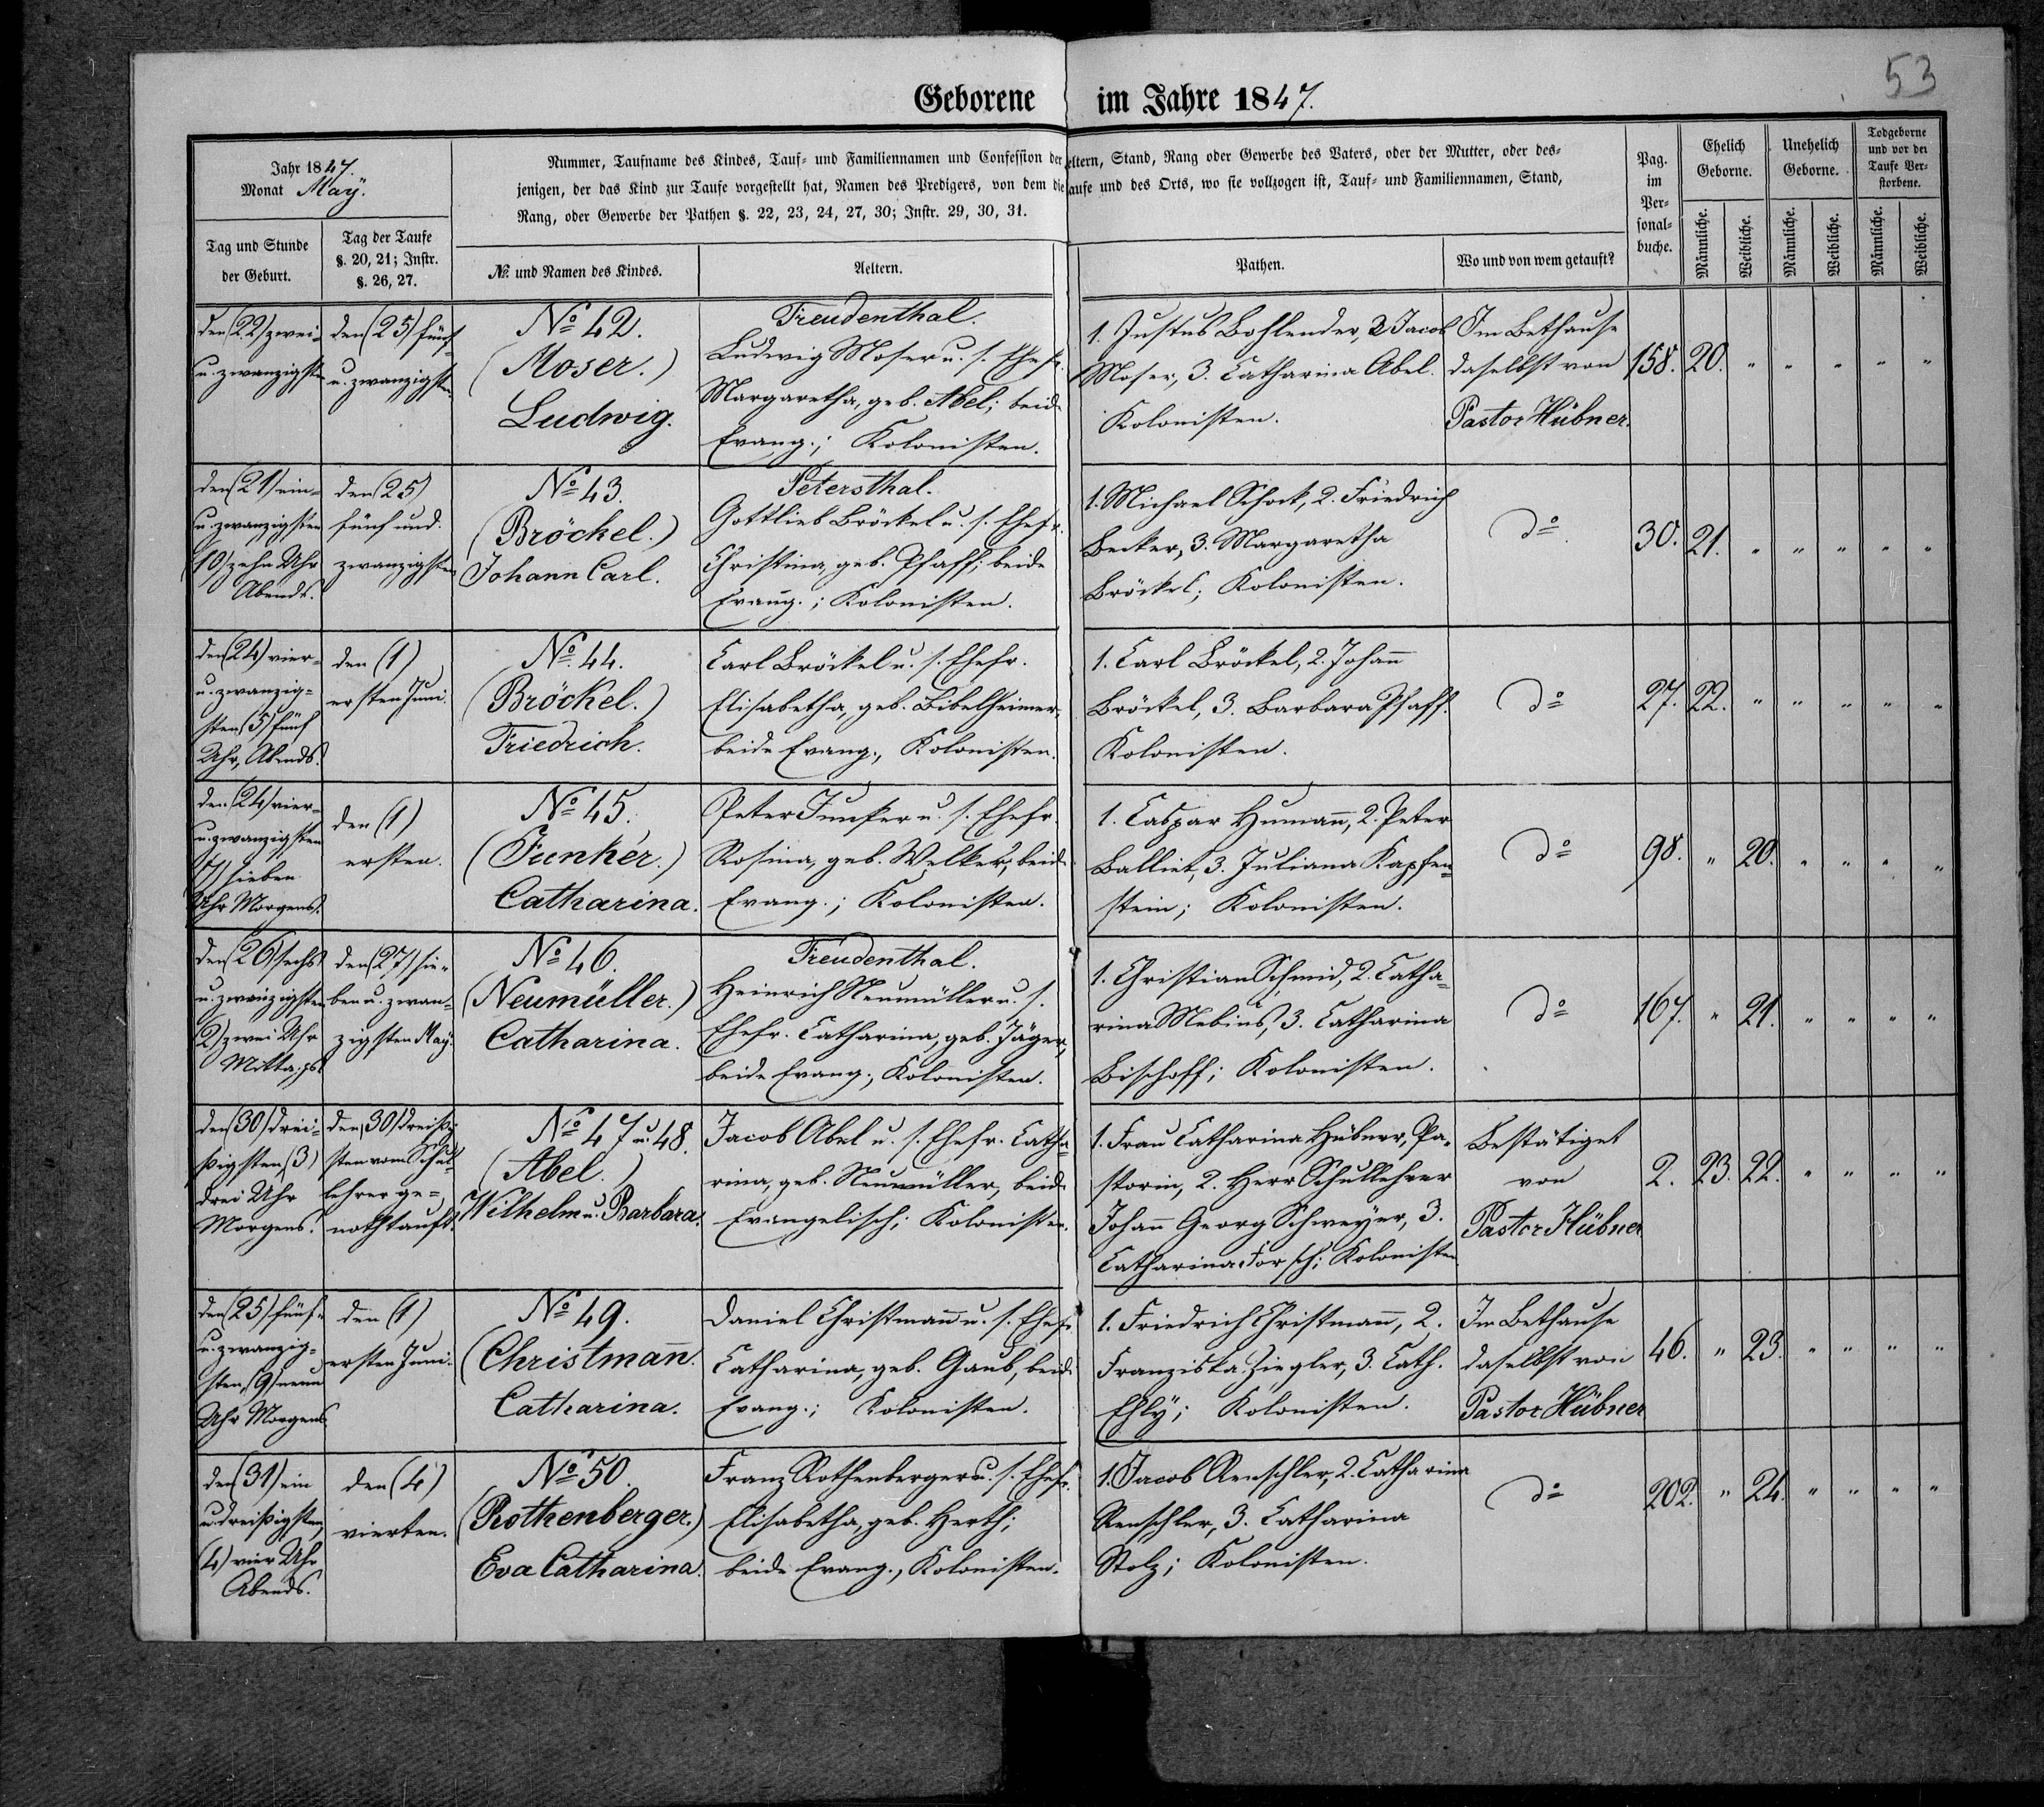 53
Geborene im Jahre 1847.
Jahr 1847.
Monat Maÿ.
Nummer, Taufname des Kindes, Tauf- und Familiennamen und Confession der eltern, Stand, Rang oder Gewerbe des Vaters, oder der Mutter, oder des-
jenigen, der das Kind zur Taufe vorgestellt hat, Namen des Predigers, von dem die aufe und des Orts, wo sie vollzogen ist, Tauf- und Familiennamen, Stand,
Rang, oder Gewerbe der Pathen §. 22, 23, 24, 27, 30; Instr. 29, 30, 31.
Tag und Stunde
der Geburt.
Tag der Taufe
§. 20, 21; Instr.
§. 26, 27.
№. und Namen des Kindes.
Aeltern.
Pathen.
Wo und von wem getauft?
Pag.
im
Per-
sonal-
buche.
Ehelich
Geborne.
Unehelich
Geborne.
Todgeborne
und vor der
Taufe Ver-
storbene.
Männliche.
Weibliche.
Männliche.
Weibliche.
Männliche.
Weibliche.
den (22) zwei-
u. zwanzigsten
den (25) fünf-
u. zwanzigsten
No 42.
(Moser.)
Ludwig.
Freudenthal.
Ludwig Moser u. s. Ehefr.
Margaretha, geb. Abel; beide
Evang.; Kolonisten.
1. Justus Bohlender, 2 Jacob
Moser, 3. Catharina Abel.
Kolonisten.
Im Bethause
daselbst von
Pastor Hübner.
158. 20. " " " " "
den (21) ein-
u. zwanzigsten
(10) zehn Uhr
Abends.
den (25)
fünf und.
zwanzigsten
No 43.
(Bröckel.)
Johann Carl.
Petersthal.
Gottlieb Bröckel u. s. Ehefr.
Christina, geb. Pfaff; beide
Evang.; Kolonisten.
1. Michael Schock, 2. Friedrich
Becker, 3. Margaretha
Bröckel; Kolonisten.
do.
30. 21. " " " " "
den (24) vier-
u. zwanzig-
sten (5) fünf
Uhr, Abends.
den (1)
ersten Juni.
No. 44.
(Bröckel.)
Friedrich.
Carl Bröckel u. s. Ehefr.
Elisabetha, geb. Bibelheimer,
beide Evang., Kolonisten.
1. Carl Bröckel, 2. Johann̄
Bröckel, 3. Barbara Pfaff.
Kolonisten.
do
27. 22. " " " " "
den (24) vier-
u. zwanzigsten
(7) sieben
Uhr Morgens.
den (1)
ersten.
No 45.
(Junker.)
Catharina.
Peter Junker u. s. Ehefr.
Rosina, geb. Welker, beide
Evang.; Kolonisten.
1. Caspar Human̄, 2. Peter
Balliet, 3. Juliana Kapfen-
stein; Kolonisten.
do
98. " 20. " " " "
den (26) sechs
u. zwanzigsten
2) zwei Uhr
Mittags.
den (27) sie-
ben u. zwan-
zigsten Maÿ.
No 46.
(Neumüller.)
Catharina.
Freudenthal.
Heinrich Neumüller u. s.
Ehefr. Catharina, geb. Jäger,
beide Evang., Kolonisten.
1. Christian Schmid, 2. Catha-
rina Mebius, 3. Catharina
Bischoff; Kolonisten.
do
167. " 21. " " " "
den (30) drei-
ßigsten (3)
drei Uhr
Morgens.
den (30) dreißig
sten vom Schul-
lehrer ge-
nothtauft.
No 47 u 48.
(Abel.)
Wilhelm u. Barbara.
Jacob Abel u. s. Ehefr. Catha-
rina, geb. Neumüller, beide
Evangelisch; Kolonisten.
1. Frau Catharina Hübner, Pa-
storin, 2. Herr Schullehrer
Johan̄ Georg Schweÿer, 3.
Catharina Forsch; Kolonisten
Bestätiget
von
Pastor Hübner
2. 23. 22. " " " "
den (25) fünf-
u. zwanzig-
sten, (9) neun
Uhr Morgens
den (1)
ersten Juni.
No 49.
(Christman̄.
Catharina.
Daniel Christman̄ u. s. Ehefr
Catharina, geb. Gaub, beide
Evang.; Kolonisten.
1. Friedrich Christman̄, 2.
Franziska Ziegler, 3. Cath.
Ehlÿ; Kolonisten.
Im Bethause
daselbst von
Pastor Hübner
46. " 23. " " " "
den (31) ein
u. dreißigsten,
(4) vier Uhr
Abends.
den (4)
vierten.
No 50
(Rothenberger.)
Eva Catharina.
Franz Rothenberger u. s. Ehefr.
Elisabetha, geb. Herth;
beide Evang., Kolonisten.
1. Jacob Renschler, 2. Catharina
Renschler, 3. Catharina
Stolz; Kolonisten.
do
202. " 24. " " " "